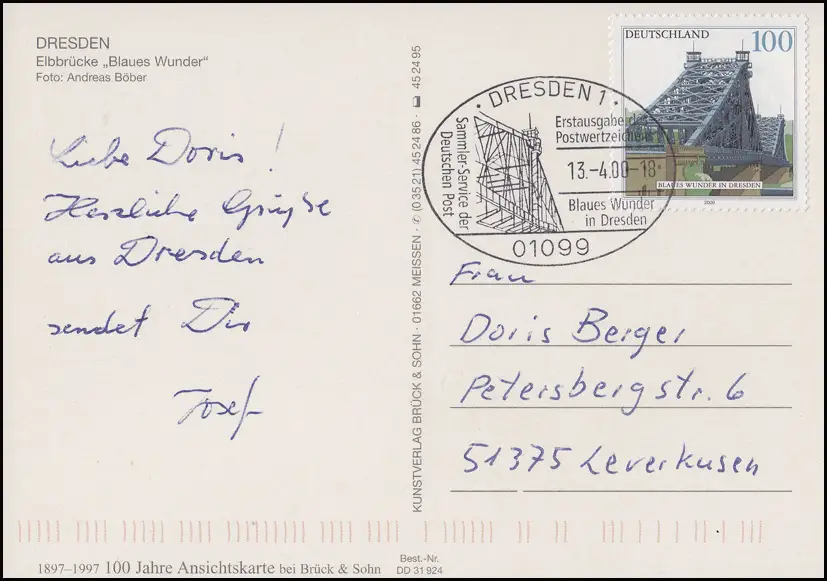 DRESDEN
Elbbrücke „Blaues Wunder“
Foto: Andreas Böber
Liebe Doris!
Herzliche Grüße
aus Dresden
sendet Dir
Josef
KUNSTVERLAG BRÜCK & SOHN · 01662 MEISSEN · ✆ (0 35 21) 45 24 86 · 45 24 95
DEUTSCHLAND
100
BLAUES WUNDER IN DRESDEN
2000
· DRESDEN 1 ·
Sammler-Service der
Deutschen Post
Erstausgabe des
Postwertzeichens
13.-4.00-18
Blaues Wunder
in Dresden
01099
Frau
Doris Berger
Petersbergstr. 6
51375 Leverkusen
1897–1997 100 Jahre Ansichtskarte bei Brück & Sohn
Best.-Nr.
DD 31 924